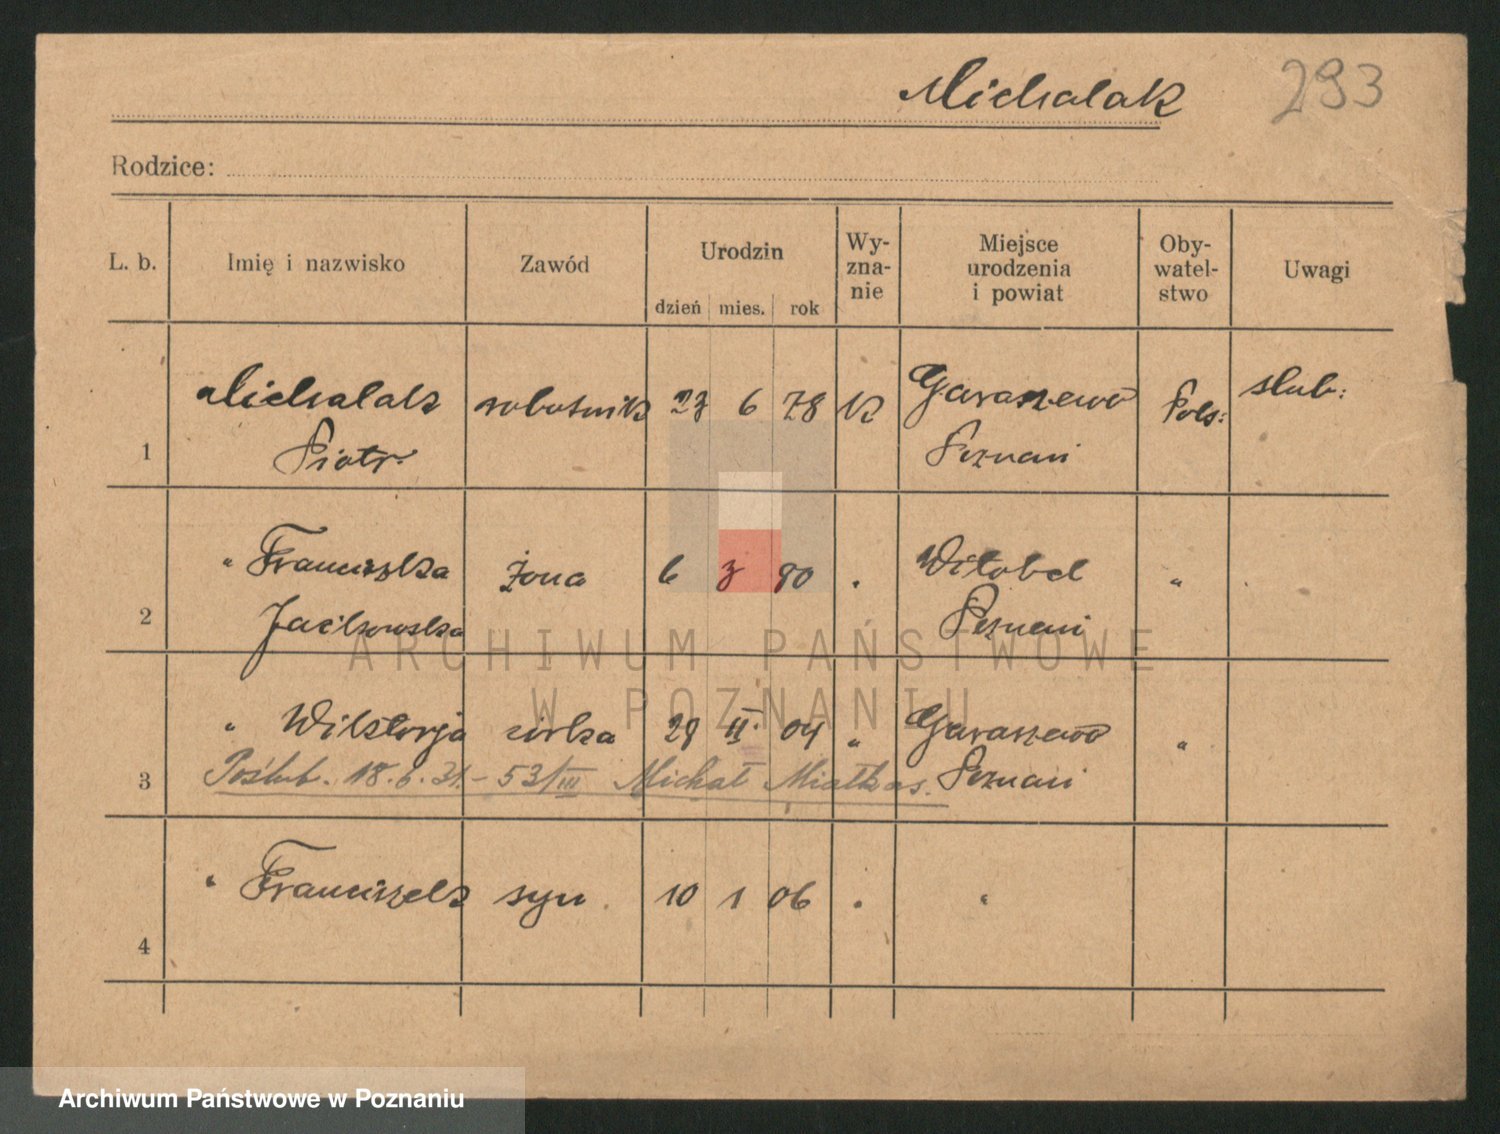 Michalak 293
Rodzice:
L. b. Imię i nazwisko Zawód Urodzin Wy-zna-nie Miejsce urodzenia i powiat Oby-watel-stwo Uwagi
dzień mies. rok
Michalak robotnik 23 6 78 K Garaszewo Pols: slub:
1 Piotr Poznań
" Franciszka żona 6 3 80 " Witobel "
2 Jacikowska Poznań
" Wiktorja córka 28 II. 04 " Garaszewo "
3 Poślub. 18.6.31.- 53/III Michał Miałkas. Poznań
" Franciszek syn 10 1 06 " "
4
ARCHIWUM PAŃSTWOWE
W POZNANIU
Archiwum Państwowe w Poznaniu